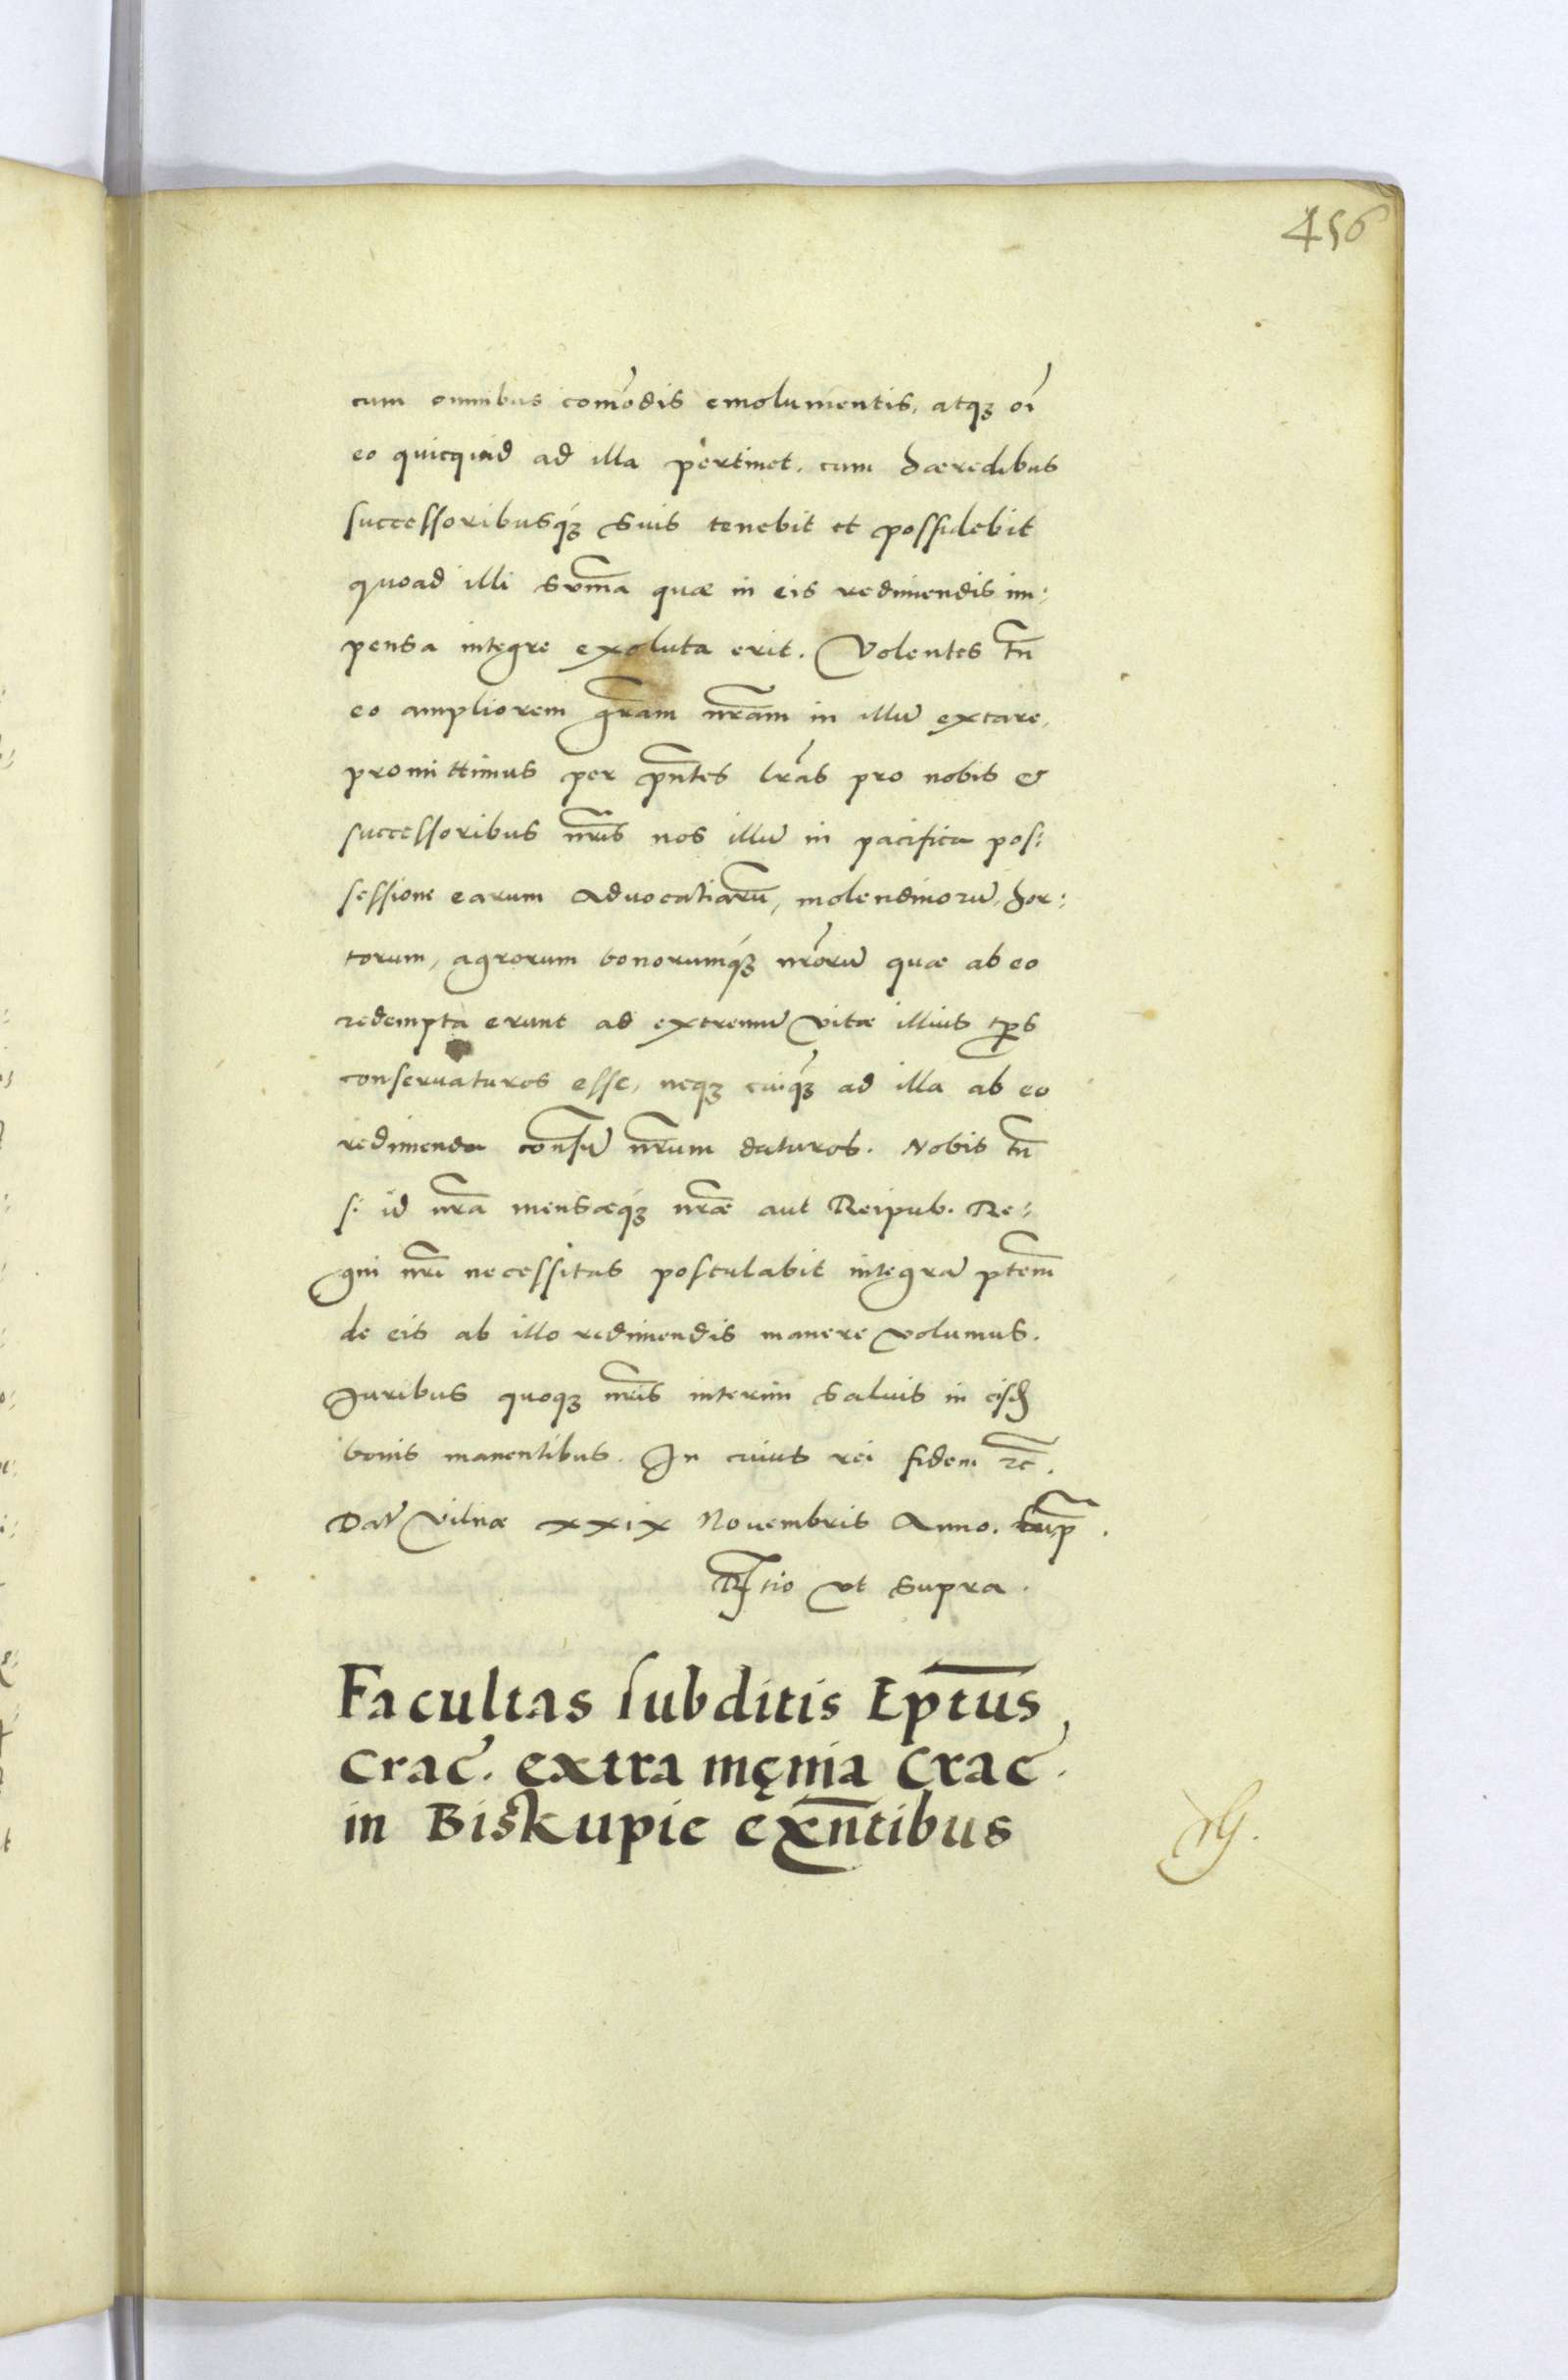 456
cum omnibus com̄odis emolumentis, atqꝫ oī
eo quicquid ad illa pertinet, cum hæredibus
successoribusqꝫ suis tenebit et possidebit
quoad illi sum̄a quæ in eis redimendis im:
pensa integre exoluta erit. Volentes tn̄
eo ampliorem grãm nrãm in illū extare,
promittimus per pñtes lrãs pro nobis et
successoribus nrĩs nos illū in pacifica pos:
sessione earum Advocatiarū, molendinorū, hor:
torum, agrorum bonorumqꝫ nrõrū quæ ab eo
redempta erunt ad extremū vitæ illius tp̄s
conservaturos esse, neqꝫ cuiqꝫ ad illa ab eo
redimenda consū nrũm daturos. Nobis tn̄
si id nrã mensæqꝫ nrãe aut Reipub. Re:
gni nrĩ necessitas postulabit integrā ptẽm
de eis ab illo redimendis manere volumus.
Juribus quoqꝫ nrĩs interim salvis in eisd
bonis manentibus. In cuius rei fidem ꝛc̃.
Dat̄ Vilnæ xxix Novembris Anno.
Rtio vt supra.
Facultas subditis Ep̄tus
Crac̄. extra męnia Crac̄.
in Biskupie exn̄tibus